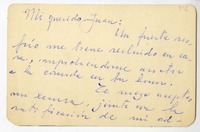 Mi querido Juan:
Un fuerte res-
frío me tiene recluido en ca-
sa, impidiéndome asistir
a la comida en tu honor.
Te ruego aceptes
mi excusa, junto con la
ratificación de mi ad-